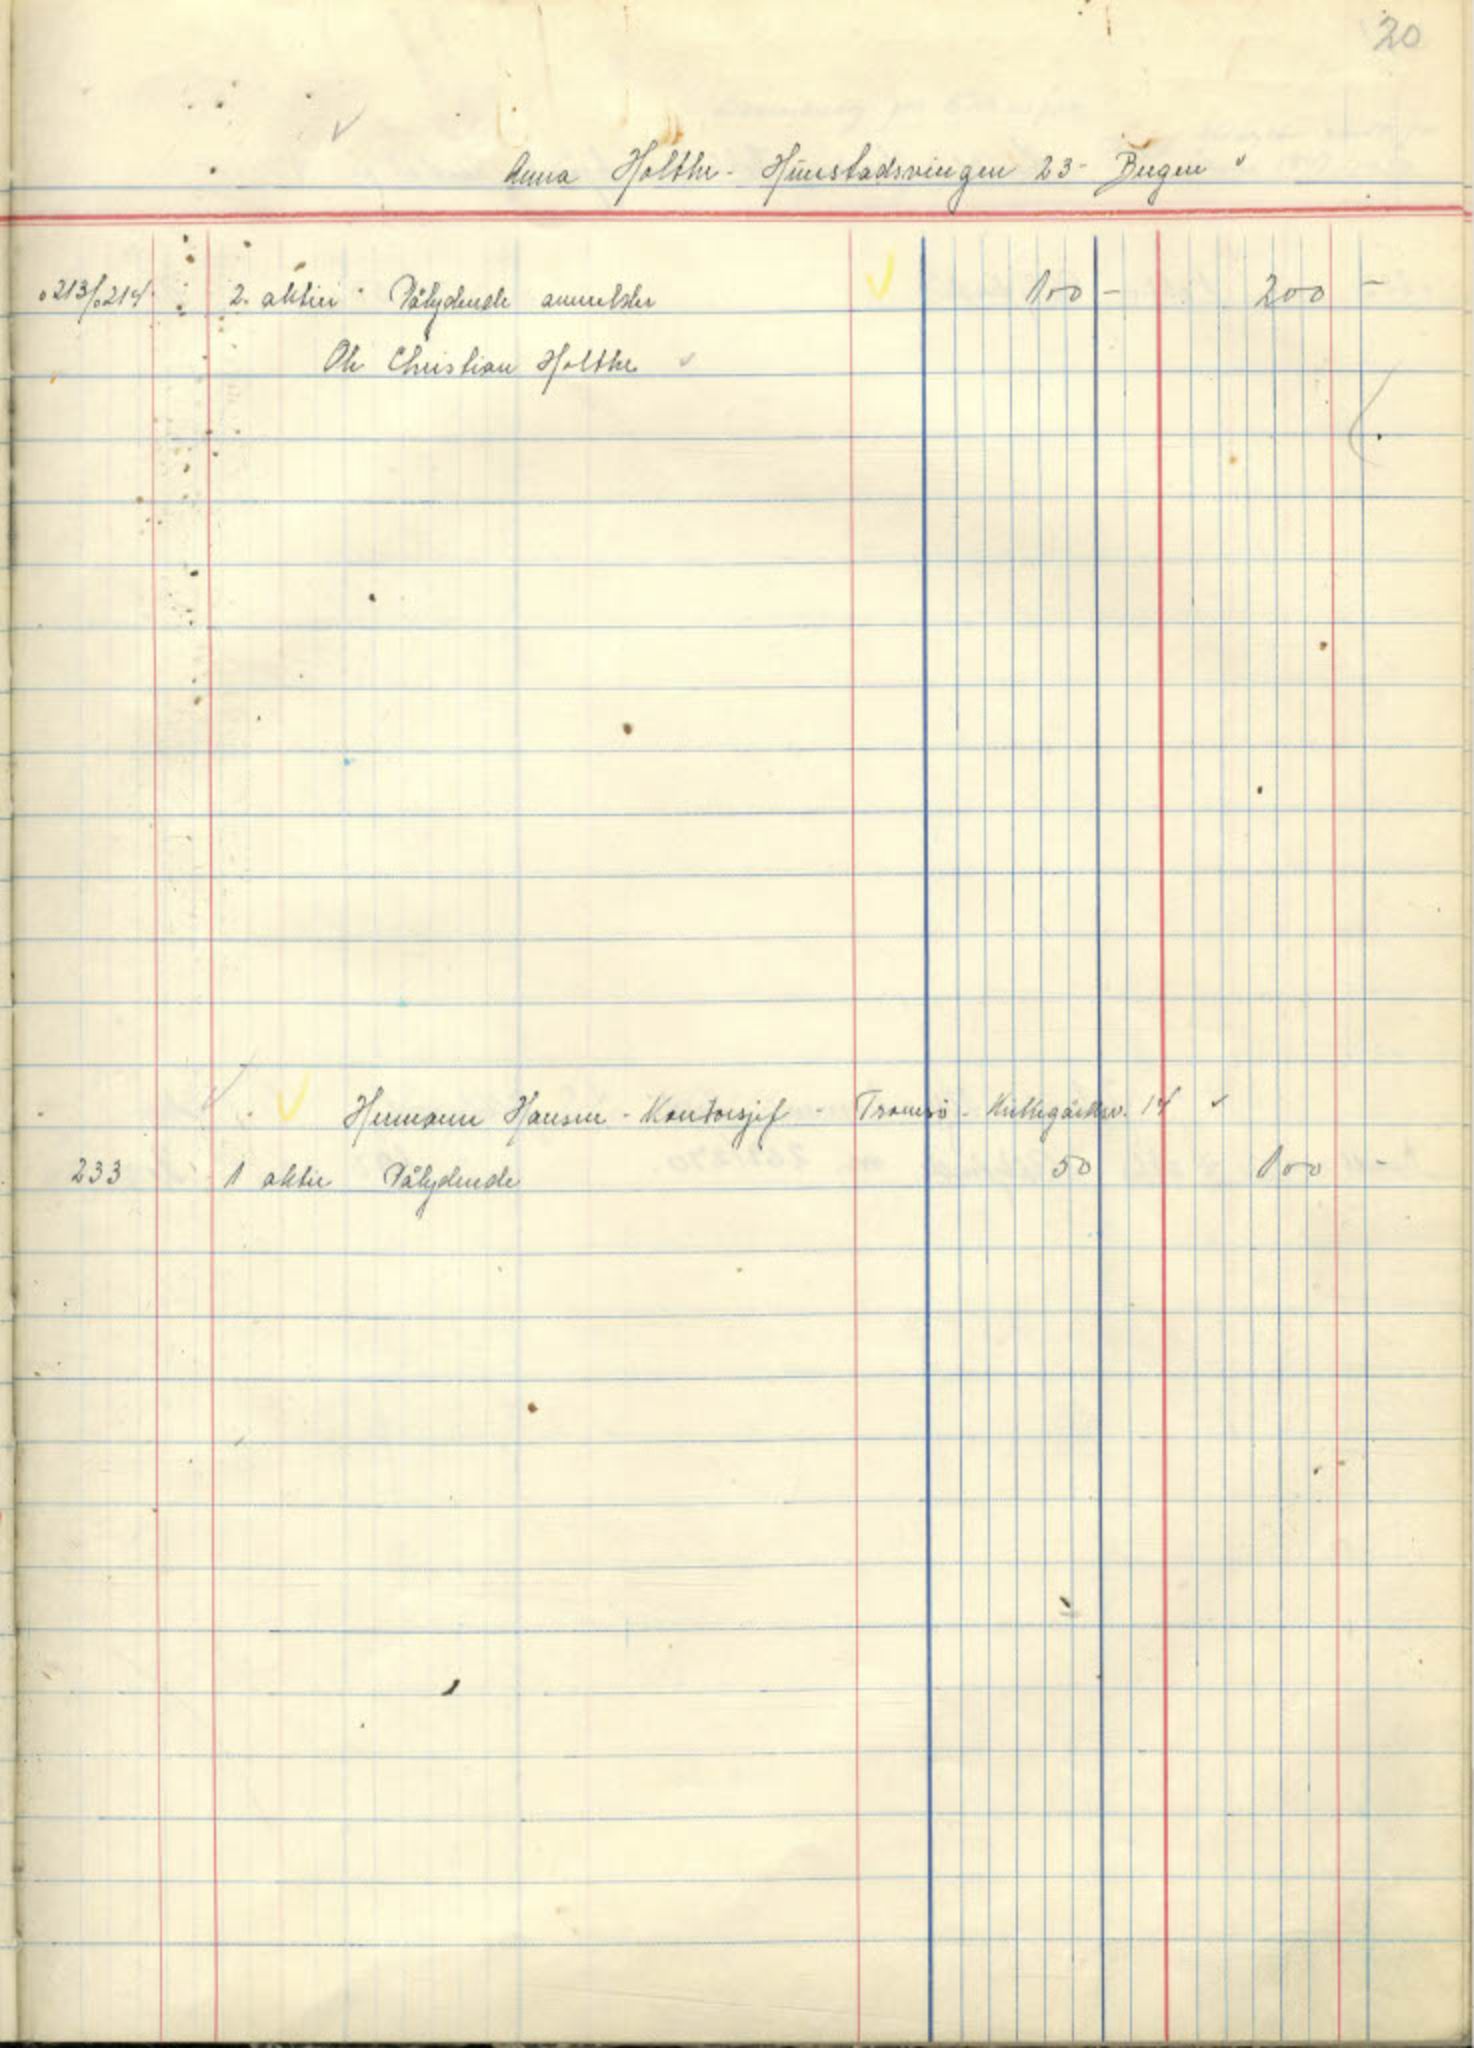 20
Anna Holthe - Hunstadsvingen 23 - Bergen
213/214 2 aktier Pålydende anmelder 100 - 200 -
Ole Christian Holthe
Hermann Hansen - Kontorsjef - Tromsö - Kirkegårdsv. 14
233 1 aktie Pålydende 50 100 -